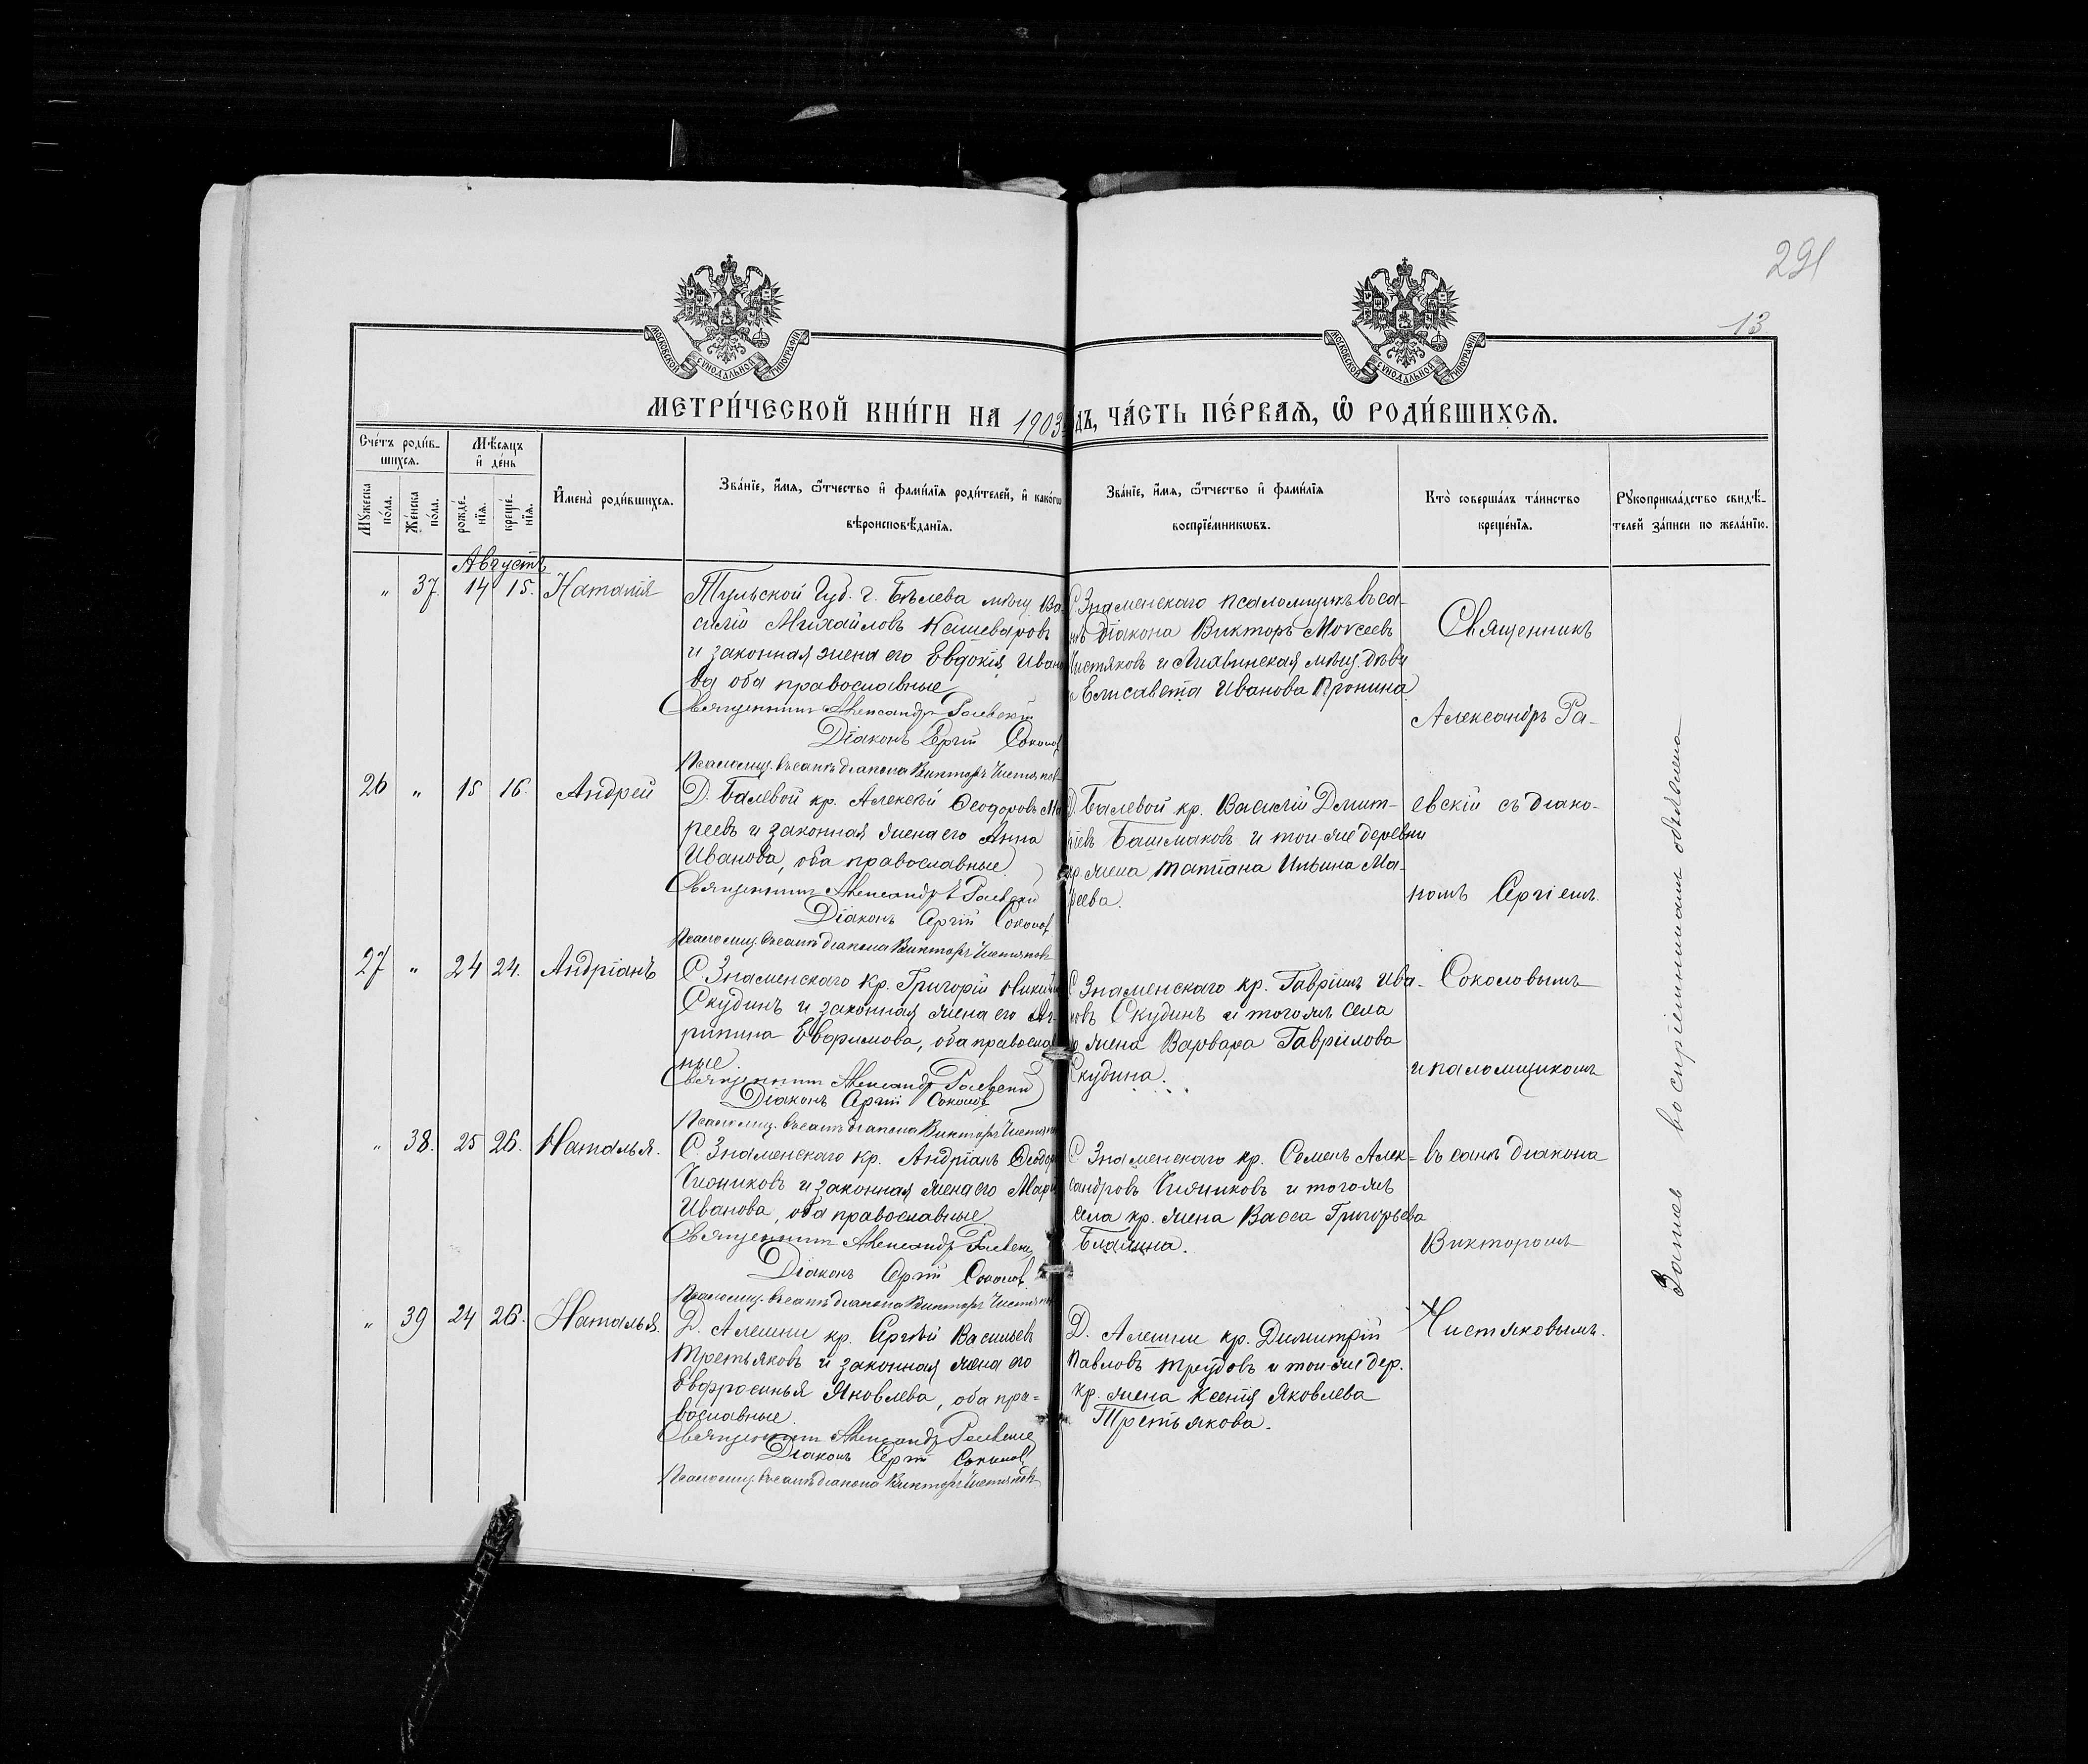 291
13.
МОСКОВСКОЙ СѴНОДАЛЬНОЙ ТИПОГРАФІИ
МОСКОВСКОЙ СѴНОДАЛЬНОЙ ТИПОГРАФІИ
МЕТРИ́ЧЕСКОЙ КНИ́ГИ НА 1903 ДЪ, ЧА́СТЬ ПЕ́РВАѦ, Ѽ РОДИ́ВШИХСѦ.
Сче́тъ роди́в-
шихся.
Мѣ́сяцъ
и҆ де́нь
Мꙋ́жеска
по́ла.
Же́нска
по́ла.
рожде́-
нїя.
креще́-
нїя.
И҆мена̀ роди́вшихся.
Зва́нїе, и҆́мя, ѻ҆́тчество и҆ фами́лїя роди́телей, и҆ како́гѡ
вѣроисповѣ́данїя.
Зва́нїе, и҆́мя, ѻ҆́тчество и҆ фами́лїя
воспрїе́мникωвъ.
Кто̀ соверша́лъ та́инство
креще́нїя.
Рꙋкоприкла́дство свидѣ́-
телей за́писи по жела́нїю.
Августъ
" 37. 14 15. Наталія
Тульской Губ. г. Бѣлева мѣщ. Ва-
силій Михайловъ Кашеваровъ
и законная жена его Евдокія Ивано
ва оба православные
Священникъ Александръ Раевскій
Діаконъ Сергій Соколов
Псаломщ. въ санѣ діакона Викторъ Чистяков
С. Знаменскаго псаломщикъ въ са-
нѣ діакона Викторъ Моѵсеевъ
Чистяковъ и мѣщ. дѣви
Елисавета Иванова Пронина
Священникъ
Александръ Ра-
26 " 15 16. Андрей
Д. Балевой кр. Алексѣй Ѳеодоровъ Ма
реевъ и законная жена его Анна
Иванова, оба православные
Священникъ Александръ Раевскій
Діаконъ Сергій Соколов
Псаломщ. въ санѣ діакона Викторъ Чистяков
Д. Балевой кр. Василій Дмит-
ріевъ Башмаковъ и той-же деревни
кр. жена Татіана Ильина Ма-
реева.
евскій съ діако-
номъ Сергіемъ.
27 " 24 24. Андріанъ
С. Знаменскаго кр. Григорій
Скудинъ и законная жена его Аг-
рипина Евфимова, оба правосла
ные.
Священникъ Александръ Раевскій
Діаконъ Сергій Соколов
Псаломщ. въ санѣ діакона Викторъ Чистяков
С. Знаменскаго кр. Гавріилъ Ива-
новъ Скудинъ и тогожъ села
жена Варвара Гаврилова
Скудина.
Соколовымъ
и псаломщикомъ
" 38. 25 26. Наталья.
С. Знаменскаго кр. Андріанъ Ѳеодор
Чижиковъ и законная жена его Марі
Иванова, оба православные
Священникъ Александръ Раевскій
Діаконъ Сергій Соколов
Псаломщ. въ санѣ діакона Викторъ Чистяков
С. Знаменскаго кр. Семенъ Алек-
сандровъ Чижиковъ и тогожъ
села кр. жена Васса Григорьева
въ санѣ діакона
Викторомъ
" 39 24 26. Наталья.
Д. Алешни кр. Сергѣй Васильевъ
Третьяковъ и законная жена его
Евфросинья Яковлева, оба пра-
вославные.
Священникъ Александръ Раевскій
Діаконъ Сергій Соколов
Псаломщ. въ санѣ діакона Викторъ Чистяков
Д. Алешни кр. Димитрій
Павловъ Трубовъ и той-же дер.
кр. жена Ксенія Яковлева
Третьякова.
Чистяковымъ.
Запись воспріемникамъ объявлена